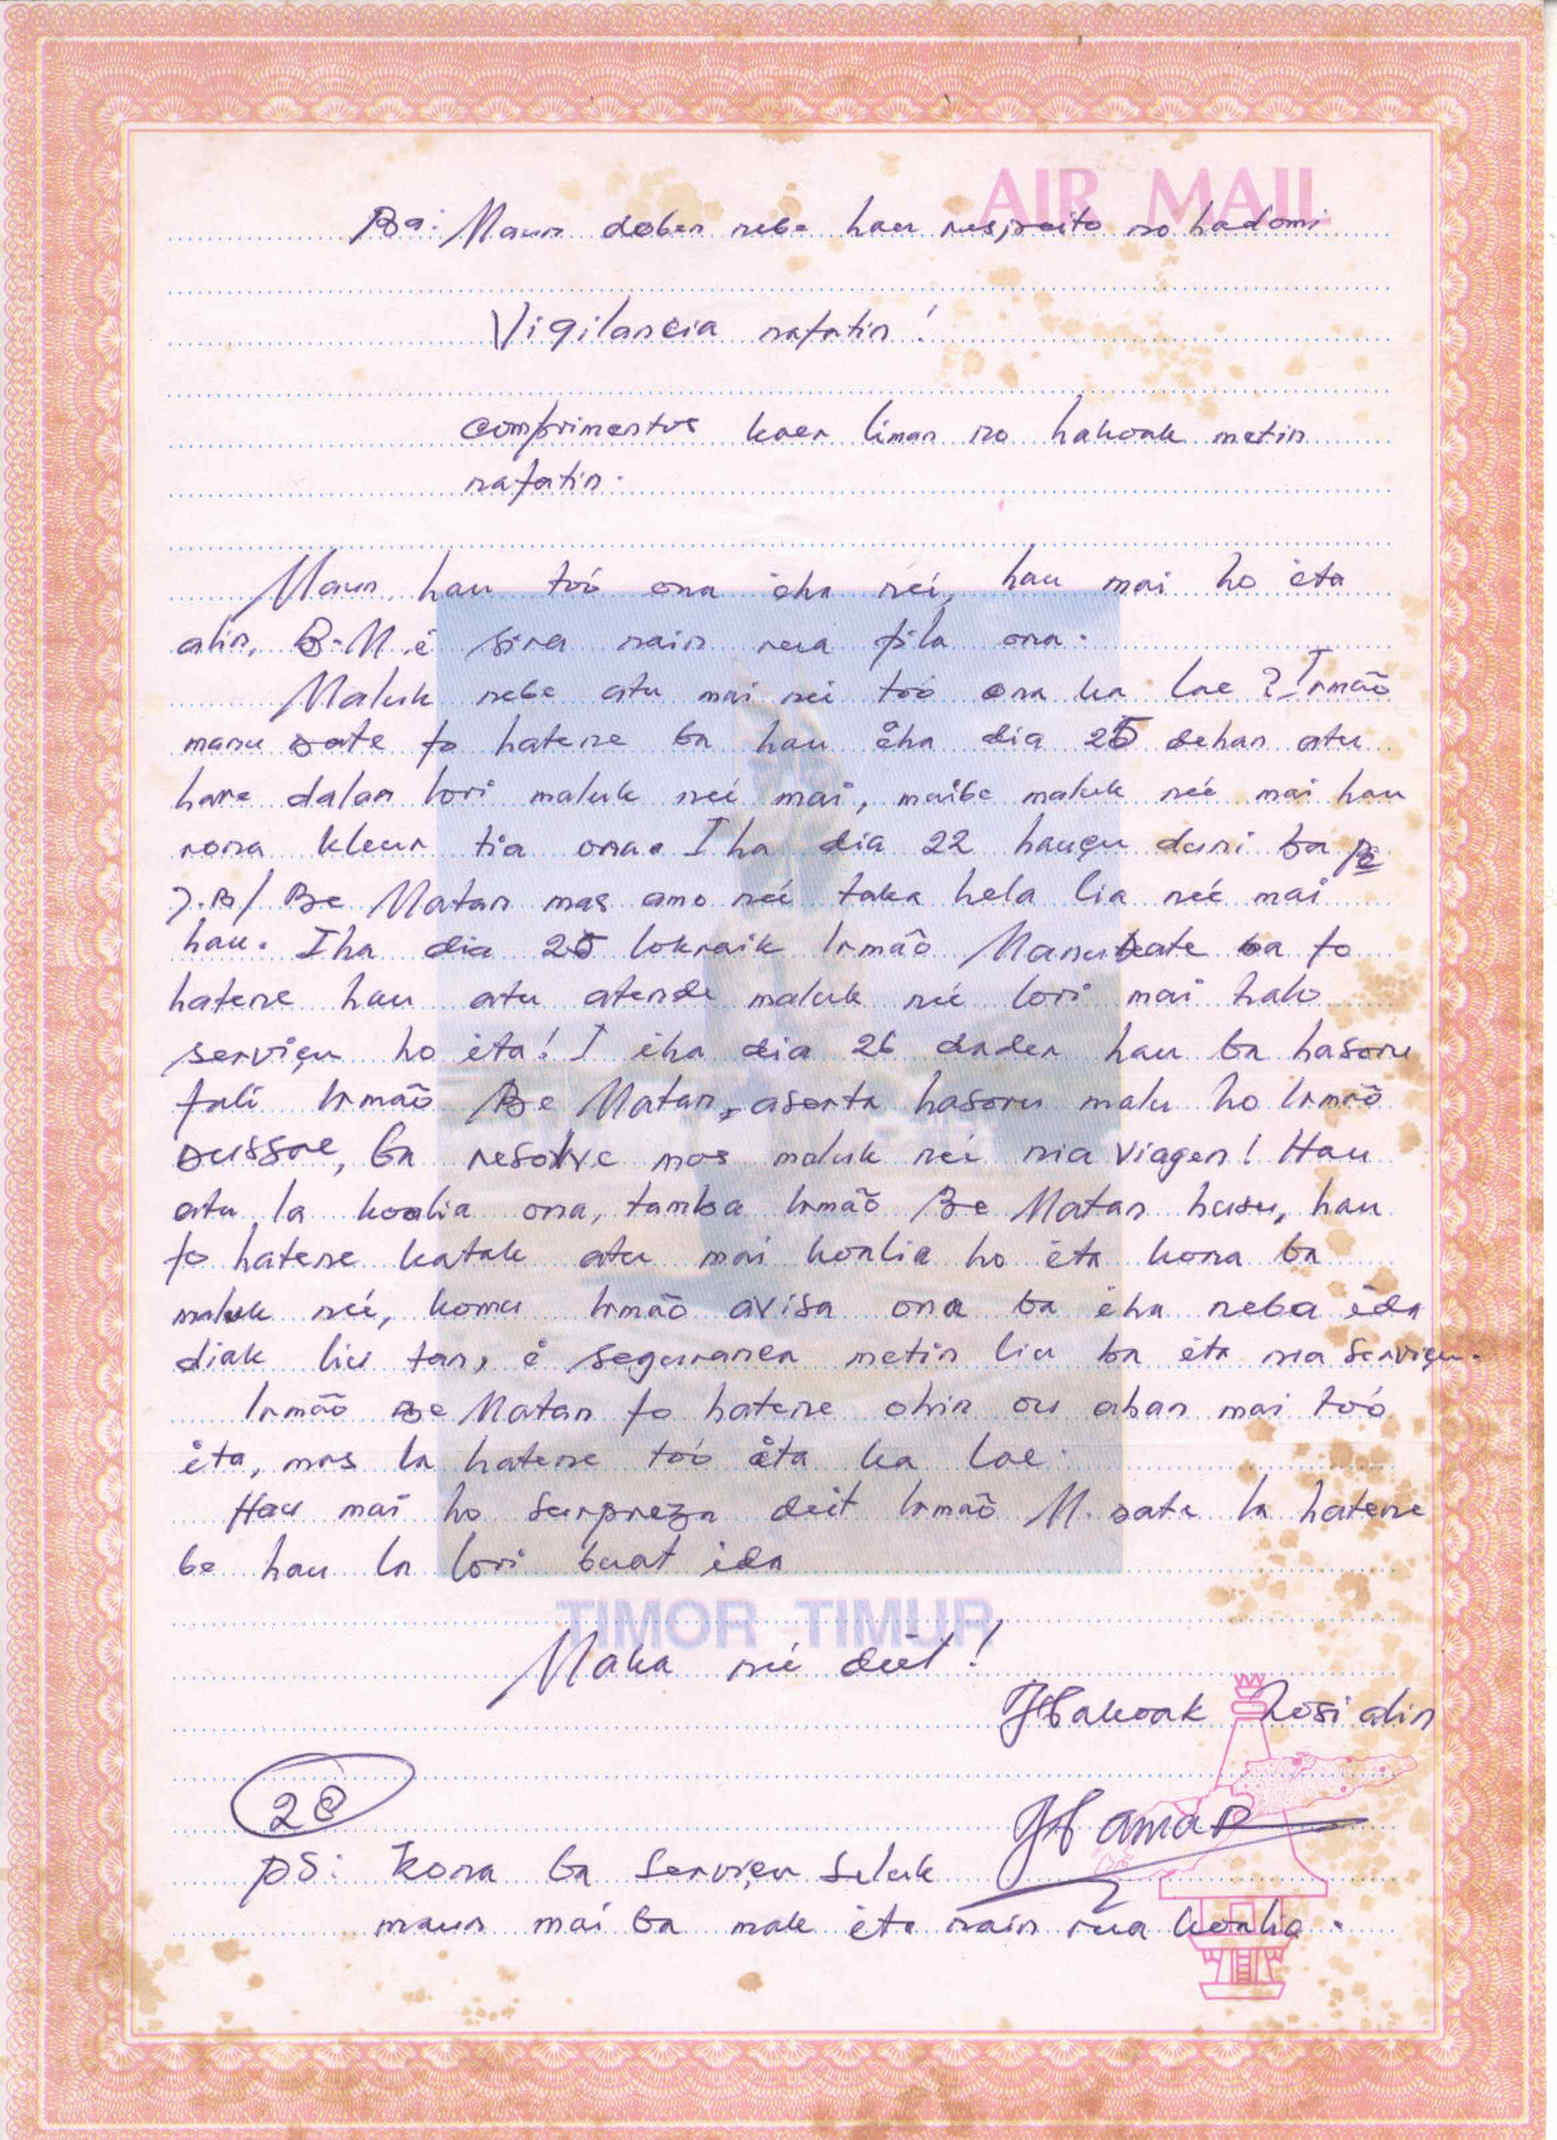 AIR MAIL
Ba: Maun doben nebe hau respeito no hadomi
Vigilancia nafatin!
comprimentus kaer liman no hakoak metin
nafatin.
Maun, hau toó ona iha neé, hau mai ho ita
alin, B.M. é sira nain rua fila ona.
Maluk nebe atu mai neé toó ona ka lae? Irmão
manu oate fo hatene ba hau iha dia 25 dehan atu
hare dalan lori maluk neé mai, maibe maluk neé mai hau
rona kleur tia ona. Iha dia 22 hauçu duni ba pe
J.B/ Be Matan mas amo neé taka hela lia neé mai
hau. Iha dia 25 lokraik Irmão Manu oate ba fo
hatene hau atu atende maluk neé lori mai halo
serviçu ho ita! I iha dia 26 dader hau ba hasoru
fali Irmão Be Matan, aserta hasoru malu ho Irmão
Sussae, ba resolve mas maluk neé nia viagen! Hau
atu la koalia ona, tamba Irmão Be Matan husu, hau
fo hatene katak atu mai koalia ho ita kona ba
maluk neé, komu Irmão avisa ona ba iha neba ida
diak liu tan, é seguranca metin liu ba ita nia serviçu.
Irmão Be Matan fo hatene ohin ou aban mai toó
ita, mas la hatene toó ita ka lae.
Hau mai ho surpreza deit Irmão M. oate la hatene
be hau la lori buat ida
TIMOR TIMUR
Maka neé deit!
Hakoak hosi alin
28
Hamar
PS: kona ba serviçu seluk
maun mai ba mak ita nain rua koalia.